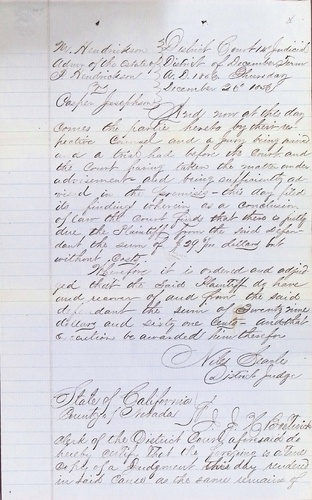 W. Hendrickson } District Court 14 Judicial
Admr of the Estate of } District of December Term
J Hendrickson } A. D. Thursday
vs } December 26th
Casper Josephson }
And now at this day
comes the parties hereto by their res
pective Counsel and a jury being
and a trial had before the Court and
the Court having taken the matter under
advisement and being sufficiently ad
vised in the premises this day files
its finding wherein as a conclusion
of law the Court finds that there is justly
due the Plaintiff from the said defen
dant the sum of $29 dollars but
without Costs.
Wherefore it is ordered and adjud
ged that the said Plaintiff do have
and recover of and from the said
defendant the sum of Twenty nine
dollars and sixty one Cents and that
execution be awarded him therefor
Niles Searls
District Judge
State of California }
County of Nevada }
Clerk of the District Court aforesaid do
hereby certify that the foregoing is a true
Copy of a Judgment this day rendered
in said Cause as the same remains of